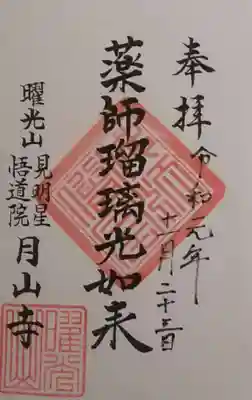 奉拝
令和元年
十一月二十三日
薬師瑠璃光如来
曜光山
見明星
悟道院
月山寺